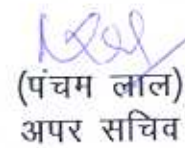 (पंचम लाल)
अपर सचिव